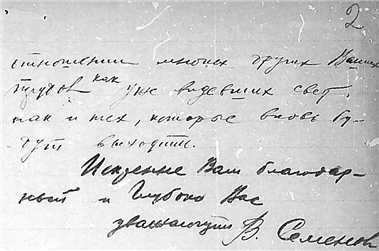 2
отношении многих других Ваших
трудов как уже видевших свет,
так и тех, которые вновь бу-
дут выходить.
Искренне Вам благодар-
ный и глубоко Вас
уважающий В Семенов